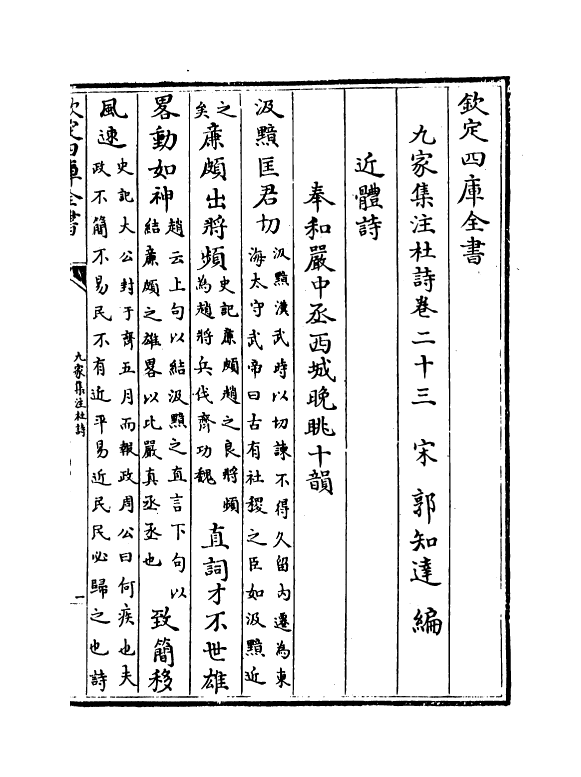 欽定四庫全書
九家集注杜詩卷二十三 宋 郭知達 編
近體詩
奉和嚴中丞西城晚眺十韻
汲黯匡君切汲黯漢武時以切諫不得久留内遷為東海太守武帝曰古有社稷之臣如汲黯近
之矣廉頗出將頻史記廉頗趙之良將頗為趙將兵伐齊功魏直詞才不世雄
畧動如神趙云上句以結汲黯之直言下句以結廉頗之雄畧以比嚴真丞丞也致簡移
風速史記大公對于齊五月而報政周公曰何疾也夫政不簡不易民不有近平易近民民必歸之也詩
欽定四庫全書
九家集注杜詩
一